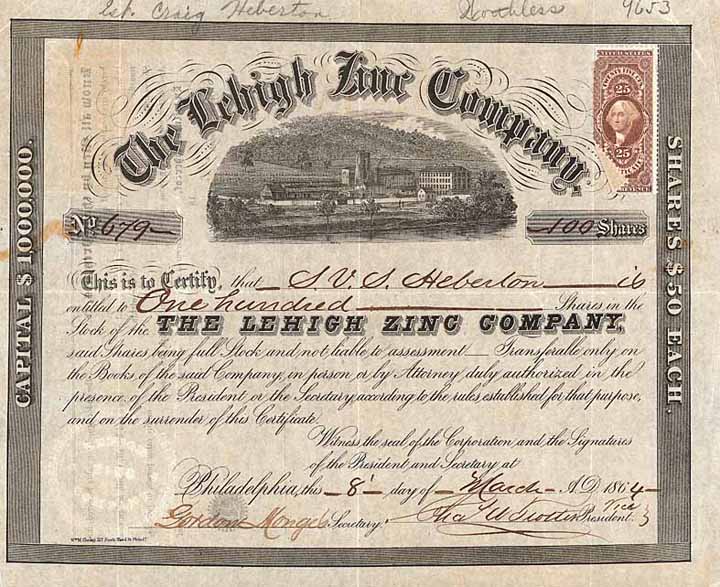 Est. Craig Heberton Worthless 9653
The Lehigh Zinc Company.
UNITED STATES
25
25
REVENUE
No 679
100 Shares
CAPITAL $1000.000.
SHARES $50 EACH.
This is to Certify, that S. V. S. Heberton is
entitled to One hundred Shares in the
Stock of the THE LEHIGH ZINC COMPANY,
said Shares being full Stock and not liable to assessment Transferable only on
the Books of the said Company, in person or by Attorney duly authorized in the
presence of the President or the Secretary according to the rules established for that purpose,
and on the surrender of this Certificate.
Witness the seal of the Corporation and the Signatures
of the President and Secretary at
Philadelphia, this 8 day of March A.D. 1864
Gordon Monges Secretary. Chas W Trotter Vice President.